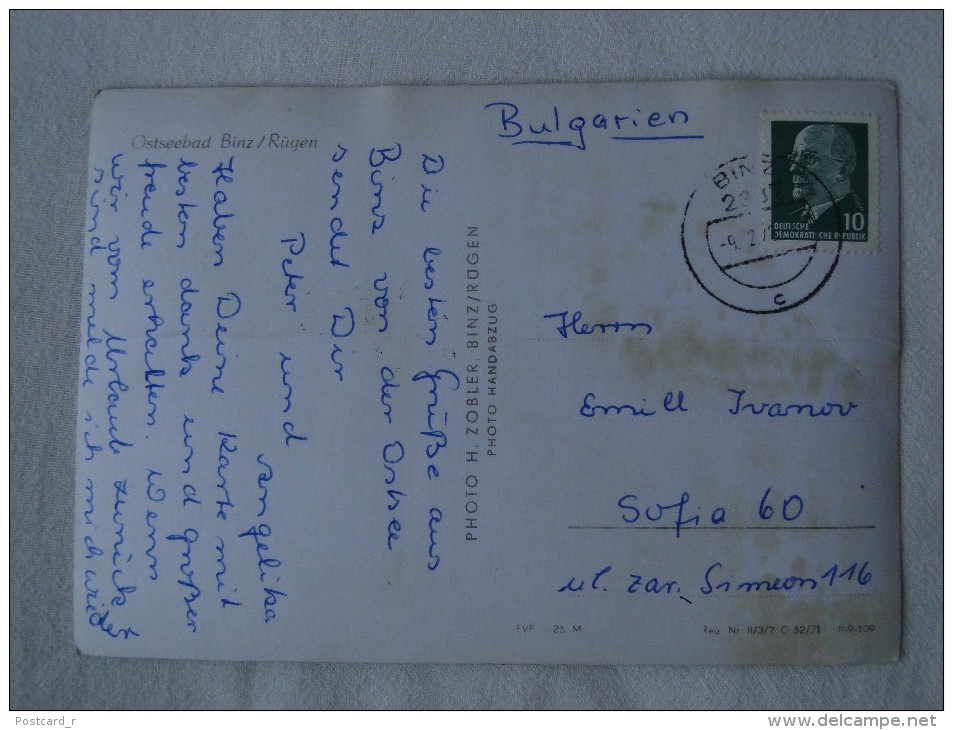 Ostseebad Binz/Rügen
Bulgarien
BINZ
DEUTSCHE
DEMOKRATISCHE REPUBLIK
10
c
Die besten Grüße aus
Binz von der Ostsee
sendet Dir
Peter und
Angelika
Haben Deine Karte mit
bestem dank und großer
freude erhalten. Wenn
wir vom Urlaub zurück
sind melde ich mich wieder
PHOTO H. ZOBLER, BINZ/RÜGEN
PHOTO-HANDABZUG
Herrn
Emill Ivanov
Sofia 60
ul. zar. Simeon 116
EVP 25 M
Reg. Nr. II/3/7 C 52/71 II-9-109
Postcard_r
www.delcampe.net